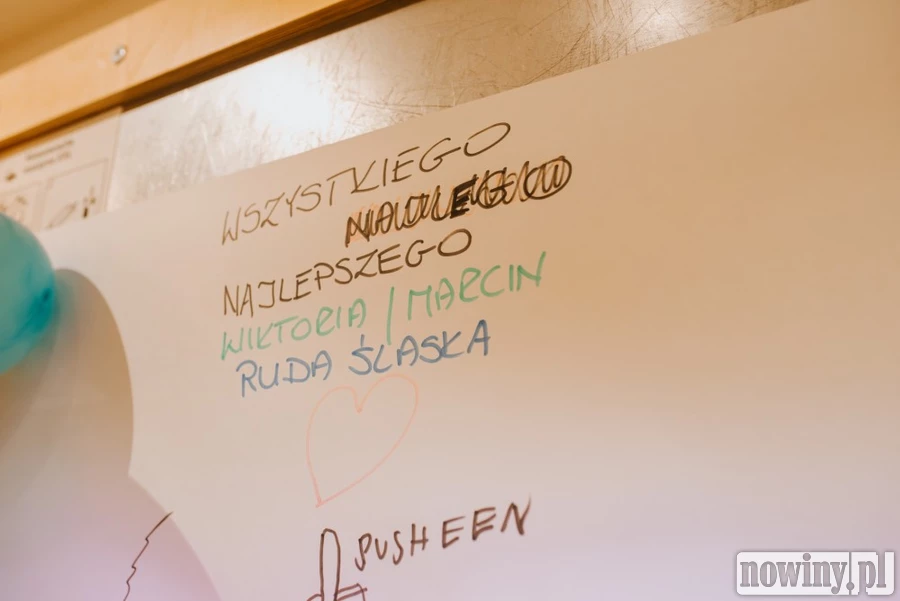 WSZYSTKIEGO
NAJLEPSZEGO
WIKTORIA / MARCIN
RUDA ŚLASKA
PUSHEEN
nowiny.pl